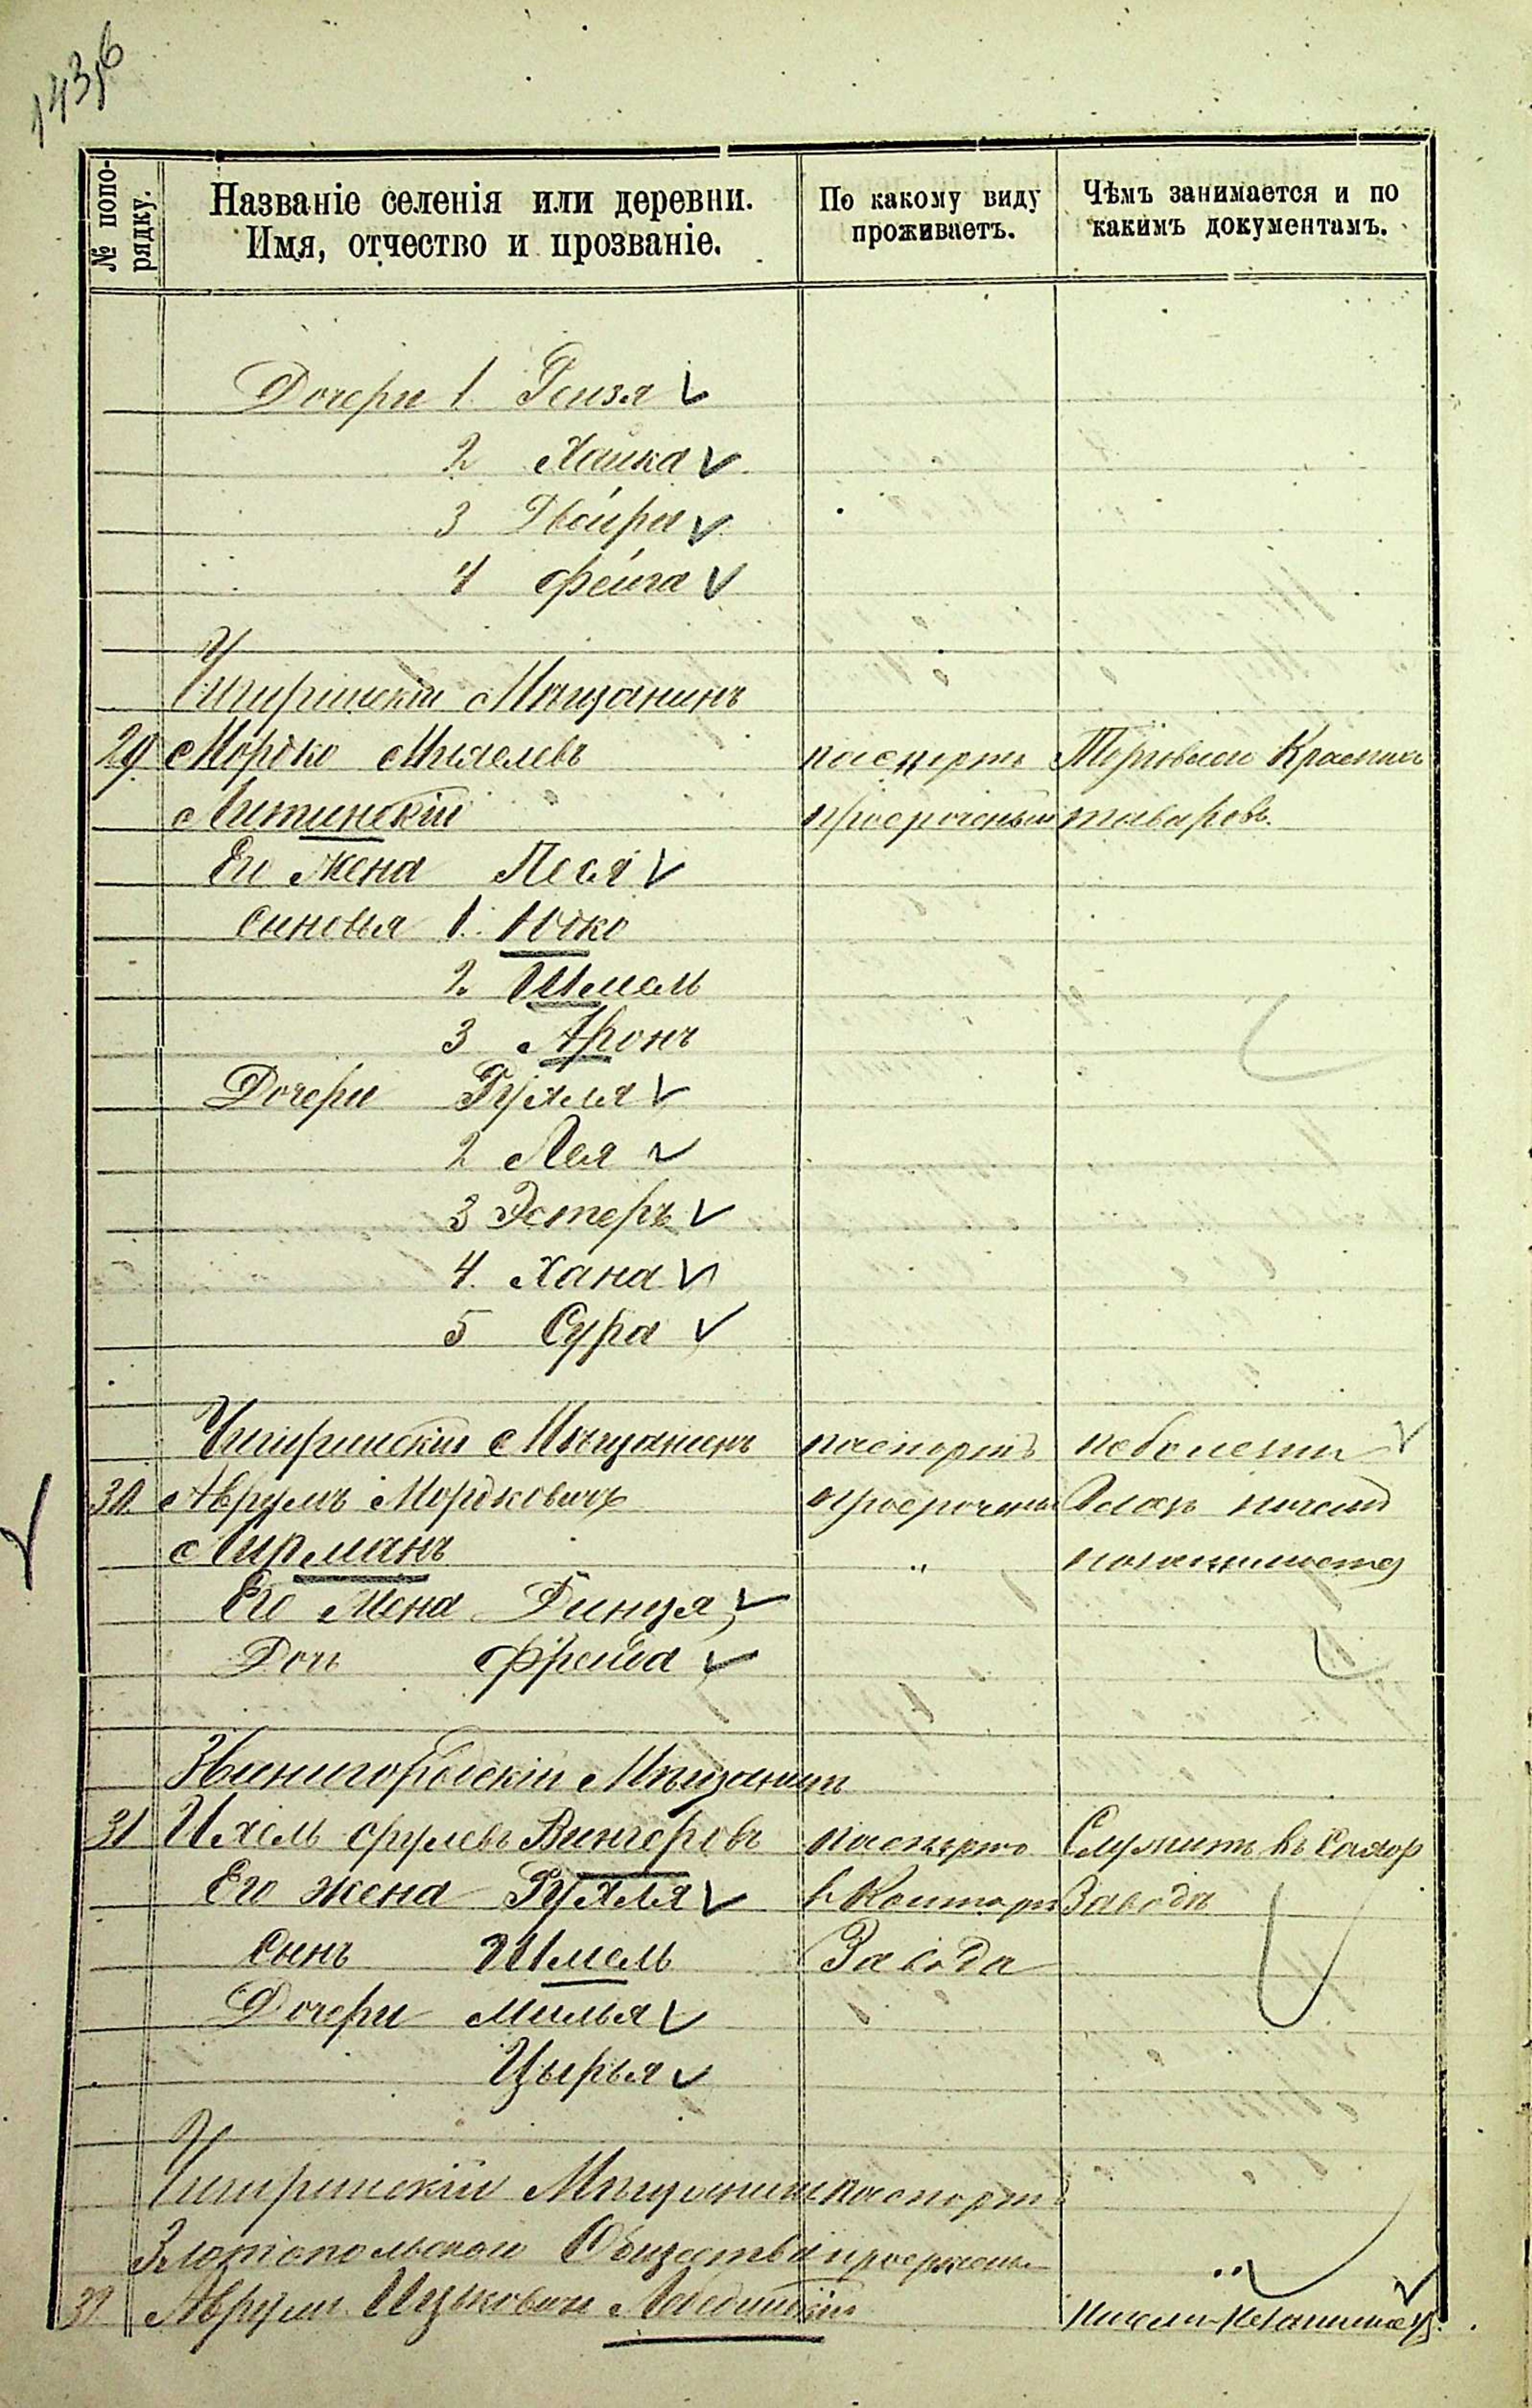 1436
№ попо-
рядку.
Названіе селенія или деревни.
Имя, отчество и прозваніе.
По какому виду
проживаетъ.
Чѣмъ занимается и по
какимъ документамъ.
Дочери 1 Рейзя
2 Хайка
3 Двойра
4 Фейга
Чигиринскій Мѣщанинъ
29 Мордко Михелевъ паспортъ Торговлей Красныхъ
Литинскій просроченый товаровъ.
Его жена Песя
Сыновья 1. Юдко
2. Шмель
3 Аронъ
Дочери Рухля
2 Лея
3 Эстеръ
4. Хана
5 Сура
Чигиринскій Мѣщанинъ паспортъ
30 Аврумъ Мордковичъ просрочены глазъ ничемъ
Липманъ " незанимается
Его жена Бинця
Доч Фрейда
Звенигородскій Мѣщанин
31 Ихель Срулевъ Вингеровъ паспортъ Служитъ въ Сахар
Его жена Рухля в Конторѣ Заводѣ
Сынъ Шмель Завода
Дочери Милья
Цырья
Чигиринскій Мѣщанин паспортъ
Златопольскаго Общества просрочены
32 Аврум Ицькович ничем-незанимаец.